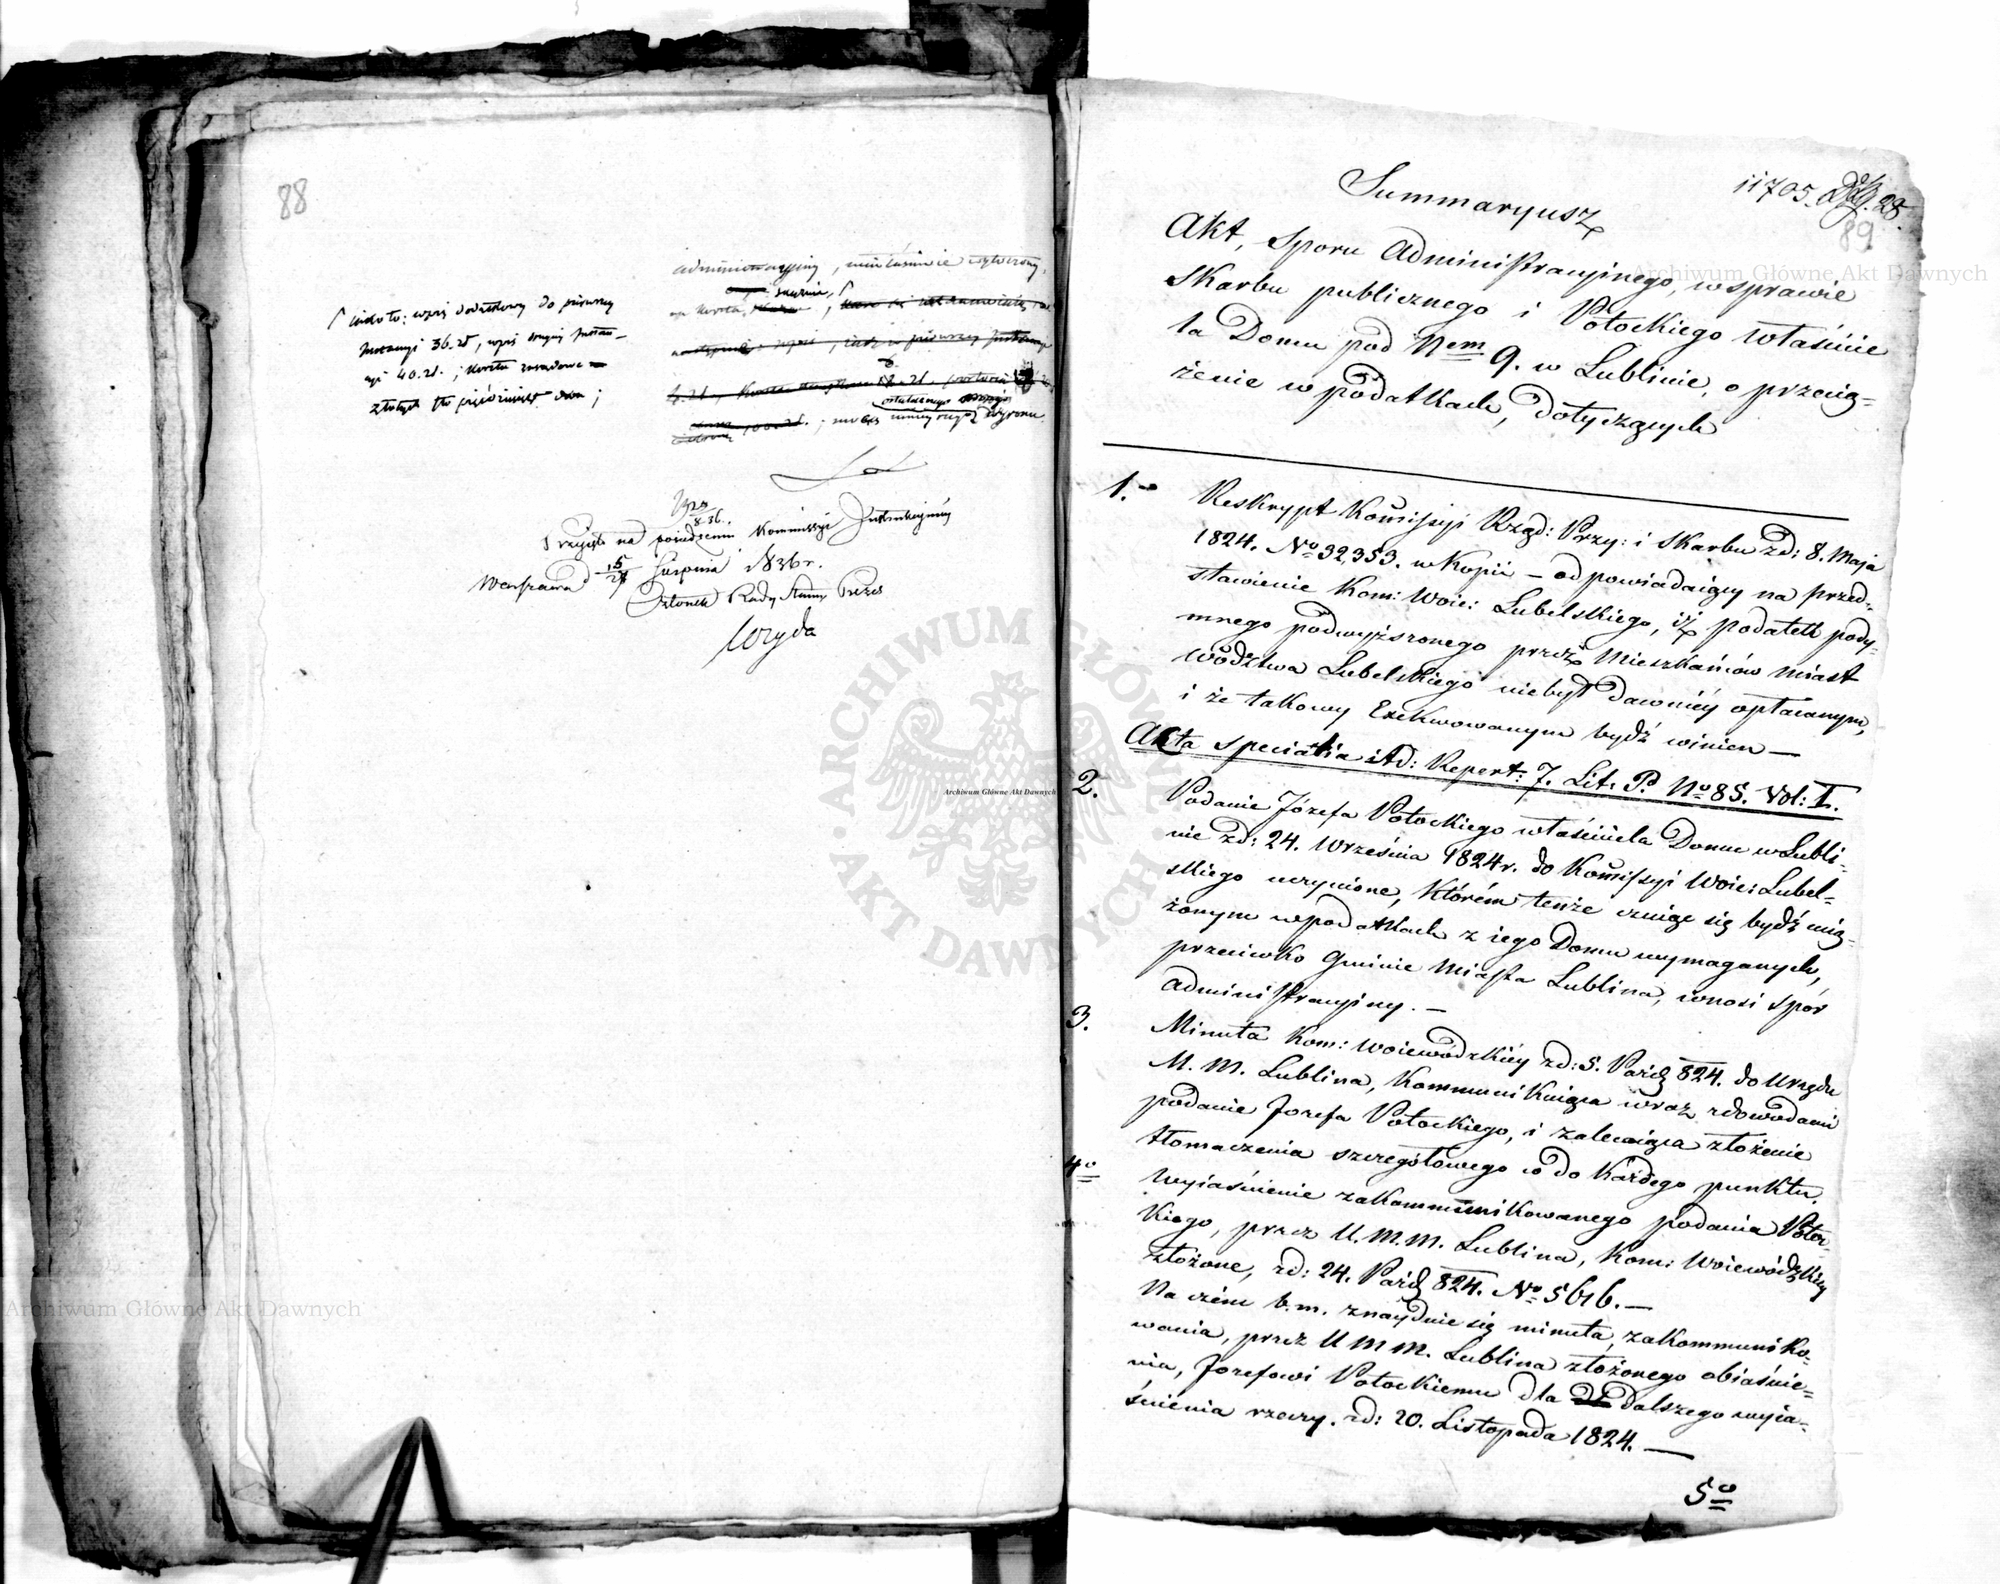 88
administracyjny, mianowicie
jako to: wpis dodatkowy do pierwszey
Instancyi 36. zł, wpis drugiey Instan-
cyi 40. zł.; koszta
złotych sto pięćdziesiąt dwa;
ostatecznego
niniejszego wyroku.
Przyjęto na posiedzeniu Kommissyi Instrukcyjnéy
Warszawa d 15/27 Sierpnia 1836 r.
Członek Rady Stanu Prezes
Woyda
11705. 28.
89
Summaryusz
Akt, Sporu Administracyjnego, w sprawie
Skarbu publicznego i Potockiego właścicie
la Domu pod Nem 9. w Lublinie, o przecią-
żenie w podatkach, dotyczących
1.o Reskrypt Kommissyi Rząd: Przy: i Skarbu z d: 8. Maja
1824. No 32353. w Kopii – odpowiadaiący na przed-
stawienie Kom: Woie: Lubelskiego, iż podatek pody-
mnego podwyższonego przez Mieszkańców miast
wództwa Lubelskiego niebył dawniéy opłacanym,
i że takowy Exekwowanym bydź winien —
Akta specialia itd: Repert: 7. Lit. P. No 85. Vol: I.
2. Podanie Józefa Potockiego właściciela Domu w Lubli-
nie z d: 24. Września 1824 r. do Kommissyi Woie: Lubel-
skiego uczynione, którém tenże czuiąc się bydź ucią-
żonym w podatkach z iego Domu wymaganych,
przeciwko Gminie Miasta Lublina, wnosi spór
administracyiny. –
3. Minuta Kom: Woiewódzkiéy z d: 5. Paźdz 824. do Urzędu
M. M. Lublina, kommunikuiąca wraz z dowodami
podanie Jozefa Potockiego, i zalecaiąca złożenie
tłomaczenia szczegółowego co do każdego punktu.
4o Wyiaśnienie zakommunikowanego podania Potoc-
kiego, przez U. M. M. Lublina, Kom: Woiewódzkiéy
złożone, z d: 24. Paźdz 824. No 5616. —
Na czém b. m. znayduie się minuta, zakommuniko-
wania, przez U M M. Lublina złożonego obiaśnie-
nia, Jozefowi Potockiemu dla dalszego wyia-
śnienia rzeczy. z d: 20. Listopada 1824. —
5o
Archiwum Główne Akt Dawnych
ARCHIWUM GŁÓWNE AKT DAWNYCH
Archiwum Główne Akt Dawnych
Archiwum Główne Akt Dawnych